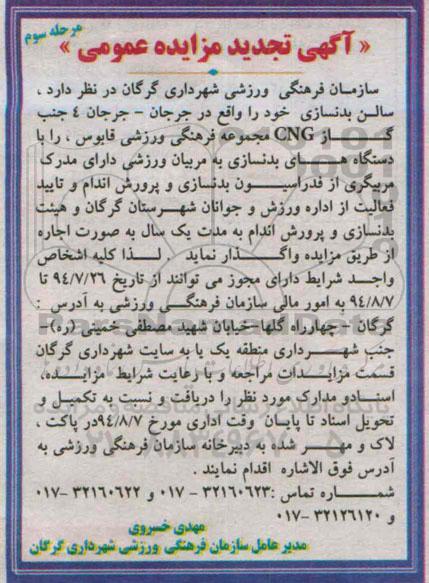 مرحله سوم
« آگهی تجدید مزایده عمومی »
سازمان فرهنگی ورزشی شهرداری گرگان در نظر دارد ،
سالن بدنسازی خود را واقع در جرجان – جرجان ٤ جنب
گاز CNG مجموعه فرهنگی ورزشی قابوس ، را با
دستگاه های بدنسازی به مربیان ورزشی دارای مدرک
مربیگری از فدراسیون بدنسازی و پرورش اندام و تایید
فعالیت از اداره ورزش و جوانان شهرستان گرگان و هیئت
بدنسازی و پرورش اندام به مدت یک سال به صورت اجاره
از طریق مزایده واگذار نماید . لذا کلیه اشخاص
واجد شرایط دارای مجوز می توانند از تاریخ ۹٤/۷/۲۶ تا
۹٤/۸/۷ به امور مالی سازمان فرهنگی ورزشی به آدرس :
گرگان – چهارراه گلها–خیابان شهید مصطفی خمینی (ره)–
جنب شهرداری منطقه یک یا به سایت شهرداری گرگان
قسمت مزایدات مراجعه و با رعایت شرایط مزایده،
اسنادو مدارک مورد نظر را دریافت و نسبت به تکمیل و
تحویل اسناد تا پایان وقت اداری مورخ ۹٤/۸/۷در پاکت ،
لاک و مهر شده به دبیرخانه سازمان فرهنگی ورزشی به
آدرس فوق الاشاره اقدام نمایند .
شماره تماس :۳۲۱۶۰۶۲۳ – ۰۱۷ و ۳۲۱۶۰۶۲۲ –۰۱۷
و ۳۲۱۲۶۱۲۰ –۰۱۷
مهدی خسروی
مدیر عامل سازمان فرهنگی ورزشی شهرداری گرگان